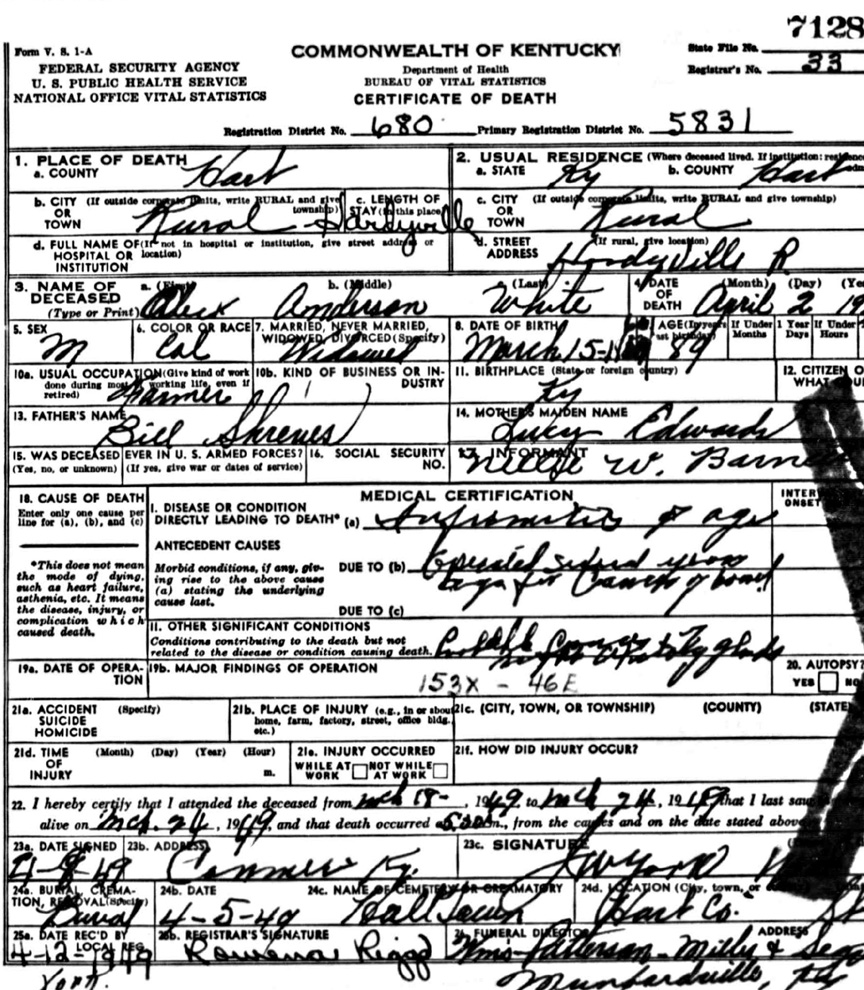 7128
Form V. S. 1-A
COMMONWEALTH OF KENTUCKY
State File No.
FEDERAL SECURITY AGENCY
Department of Health
Registrar's No. 33
U. S. PUBLIC HEALTH SERVICE
BUREAU OF VITAL STATISTICS
NATIONAL OFFICE VITAL STATISTICS
CERTIFICATE OF DEATH
Registration District No. 680 Primary Registration District No. 5831
1. PLACE OF DEATH
a. COUNTY Hart
2. USUAL RESIDENCE (Where deceased lived. If institution: residence
a. STATE Ky b. COUNTY Hart
b. CITY (If outside corporate limits, write RURAL and give township)
OR
TOWN Rural Hardyville
c. LENGTH OF
STAY (in this place)
c. CITY (If outside corporate limits, write RURAL and give township)
OR
TOWN Rural
d. FULL NAME OF (If not in hospital or institution, give street address or
HOSPITAL OR location)
INSTITUTION
d. STREET (If rural, give location)
ADDRESS Hardyville R
3. NAME OF
DECEASED
(Type or Print)
a. (First) Aleck
b. (Middle) Anderson
(Last) White
4. DATE
OF
DEATH
(Month) (Day) (Ye
April 2 19
5. SEX
M
6. COLOR OR RACE
Col
7. MARRIED, NEVER MARRIED,
WIDOWED, DIVORCED (Specify)
Widowed
8. DATE OF BIRTH
March 15-
AGE (In years
last birthday)
89
If Under 1 Year
Months Days
If Under
Hours
10a. USUAL OCCUPATION (Give kind of work
done during most of working life, even if
retired) Farmer
10b. KIND OF BUSINESS OR IN-
DUSTRY
11. BIRTHPLACE (State or foreign country)
Ky
12. CITIZEN O
WHAT COU
13. FATHER'S NAME
Bill
14. MOTHER'S MAIDEN NAME
Lucy Edwards
15. WAS DECEASED EVER IN U. S. ARMED FORCES?
(Yes, no, or unknown) (If yes, give war or dates of service)
16. SOCIAL SECURITY
NO.
17. INFORMANT
Nellie W. Barn
18. CAUSE OF DEATH
Enter only one cause per
line for (a), (b), and (c)
*This does not mean
the mode of dying,
such as heart failure,
asthenia, etc. It means
the disease, injury, or
complication which
caused death.
MEDICAL CERTIFICATION
INTER
ONSET
I. DISEASE OR CONDITION
DIRECTLY LEADING TO DEATH* (a) Infirmities of age
ANTECEDENT CAUSES
Morbid conditions, if any, giv-
ing rise to the above cause
(a) stating the underlying
cause last.
DUE TO (b) Operated several years
ago for Cancer of bowel
DUE TO (c)
II. OTHER SIGNIFICANT CONDITIONS
Conditions contributing to the death but not
related to the disease or condition causing death.
Probable Cancer
glands
19a. DATE OF OPERA-
TION
19b. MAJOR FINDINGS OF OPERATION
153X - 46E
20. AUTOPSY?
YES NO
21a. ACCIDENT (Specify)
SUICIDE
HOMICIDE
21b. PLACE OF INJURY (e.g., in or about
home, farm, factory, street, office bldg.
etc.)
21c. (CITY, TOWN, OR TOWNSHIP) (COUNTY) (STATE)
21d. TIME (Month) (Day) (Year) (Hour)
OF
INJURY m.
21e. INJURY OCCURRED
WHILE AT NOT WHILE
WORK AT WORK
21f. HOW DID INJURY OCCUR?
22. I hereby certify that I attended the deceased from Mch 18-, 1949, to Mch 24, 1949 that I last saw
alive on Mch. 24, 1949, and that death occurred at m., from the causes and on the date stated above
23a. DATE SIGNED
4-8-49
23b. ADDRESS
Canmer Ky.
23c. SIGNATURE
24a. BURIAL, CREMA-
TION, REMOVAL (Specify)
Burial
24b. DATE
4-5-49
24c. NAME OF CEMETERY OR CREMATORY
Hall Town
24d. LOCATION (City, town, or
Hart Co.
25a. DATE REC'D BY
LOCAL REG.
4-12-1949
25b. REGISTRAR'S SIGNATURE
Rowena Riggs
26. FUNERAL DIRECTOR ADDRESS
Patterson - Milby &
Munfordville, Ky